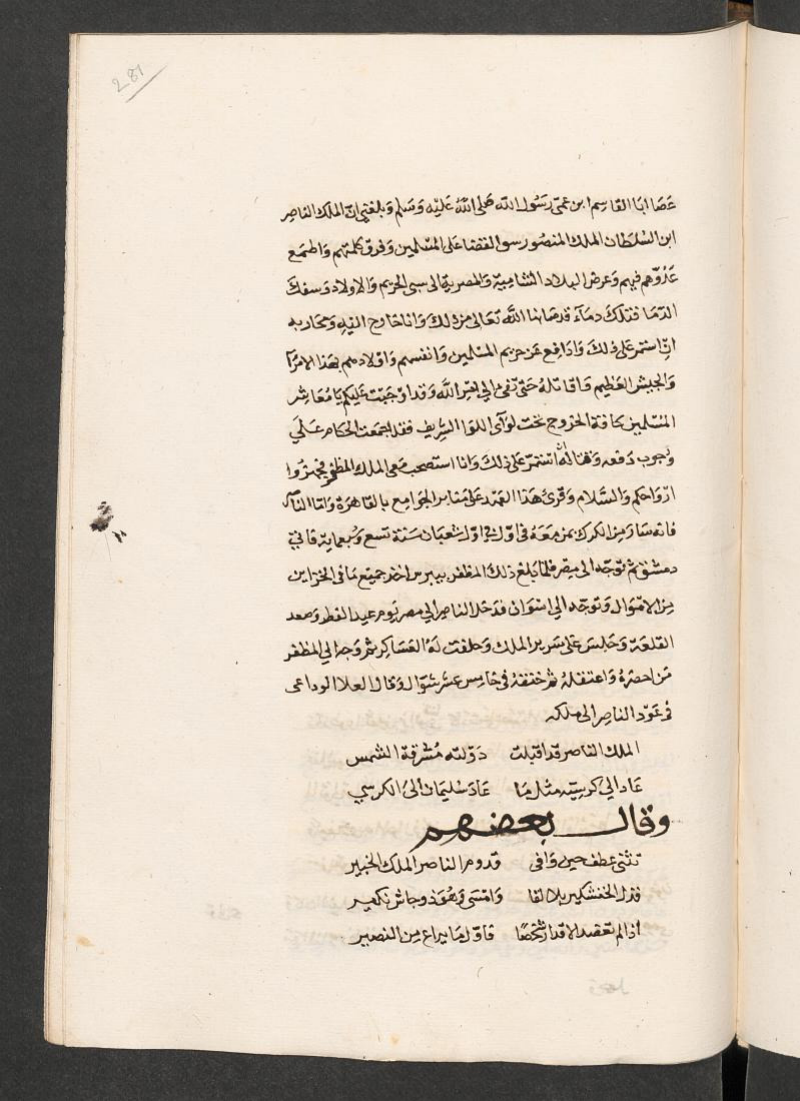 281
عَصَا ابَا القَاسِم ابن عَمّى رَسُول اللّه صَلى اللّهُ عَليْه وَسَلم وَبلغنى انّ الملك الناصِر
ابن السُلطَان الملك المنصُور سو الفضا عَلى المسْلمين وَفرق كلمتهم وَاطمَع
عَدُوّهم فيهم وَعرض البلاد الشامِيّة وَالمصرية الى سبى الحريم وَالاولاد وَسفك
الدّمَا فتلك دمآء قد صَانهَا اللّه تعَالى من ذلك وَانا خارج اليه وَمحَاربه
انِ استمر عَلى ذلك وَادَافع عَن حريم المسْلمين وَانفسهم وَاولادهم بهَذا الامر
وَالجيش العَظيم وَاقاتلهُ حَتى تفى الى امر اللّه وَقد اوجَبْت عَليكم يَا مُعَاشر
المُسْلمين كافة الخروج تحت لوَآى اللوا الشريف فقد اجمَعت الحكام عَلى
وجوب دَفعه وَقتاله ان استمرّ عَلى ذلك وَانا استصحب مَعى الملك المظفر فجهزُوا
ارْوَاحكم وَالسَّلام وَقرئ هَذا العَهْد عَلى منابر الجوَامِع بالقاهِرَة وَامّا الناصر
فانه سَارَ مِن الكرك بمن مَعَهُ فى اوّل شعبَان سَنة تسع وَسبعماية فاتى
دمشق ثم توَجّه الى مِصر فلمّا بَلغ ذلك المظفر بيبرس اخذ جميع مَا فى الخزاين
مِن الامْوَال وَتوجّه الى اسْوَان فدَخل الناصِر الى مصر يَوم عيد الفطر وَصعد
القلعَة وَجَلسَ عَلى سَرير الملك وَحلفت لهُ العَسَاكر ثم وَجه الى المظفر
مَن احضرهُ وَاعتقلهُ ثم خنقهُ فى خَامِس عشر شوّال وَقال العلا الوداعى
فى عَوْد الناصِر الى ملكه
الملك الناصر قد اقبلت دَوْلته مُشرقة الشمس
عَاد الى كرسيّه مثل مَا عَادَ سُليمَان الى الكرسي
وَقال بعضهم
تثنى عطف حين وَافى قدوم الناصر الملك الخبير
فذل الخشنكير بلا لقا وَامْسَى وَهوَ ذو جاش نكير
اذا لم تعضد الاقدار شخصًا فاوّل مَا يراع مِن النصير